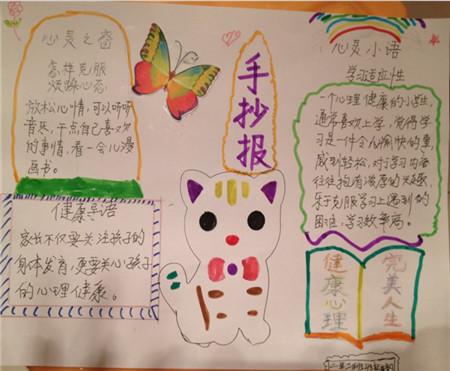 心灵之窗
怎样克服
烦躁心态
放松心情,可以听听
音乐,干点自己喜欢
的事情,看一会儿漫
画书。
健康导语
家长不仅要关注孩子的
身体发育,更要关心孩子
的心理健康。
手抄报
心灵小语
学习适应性
一个心理健康的小学生,
通常喜欢上学,觉得学
习是一件令人愉快的事,
感到轻松,对学习内容
往往抱有浓厚的兴趣,
乐于克服学习上遇到的
困难,学习效率高。
健康心理
完美人生